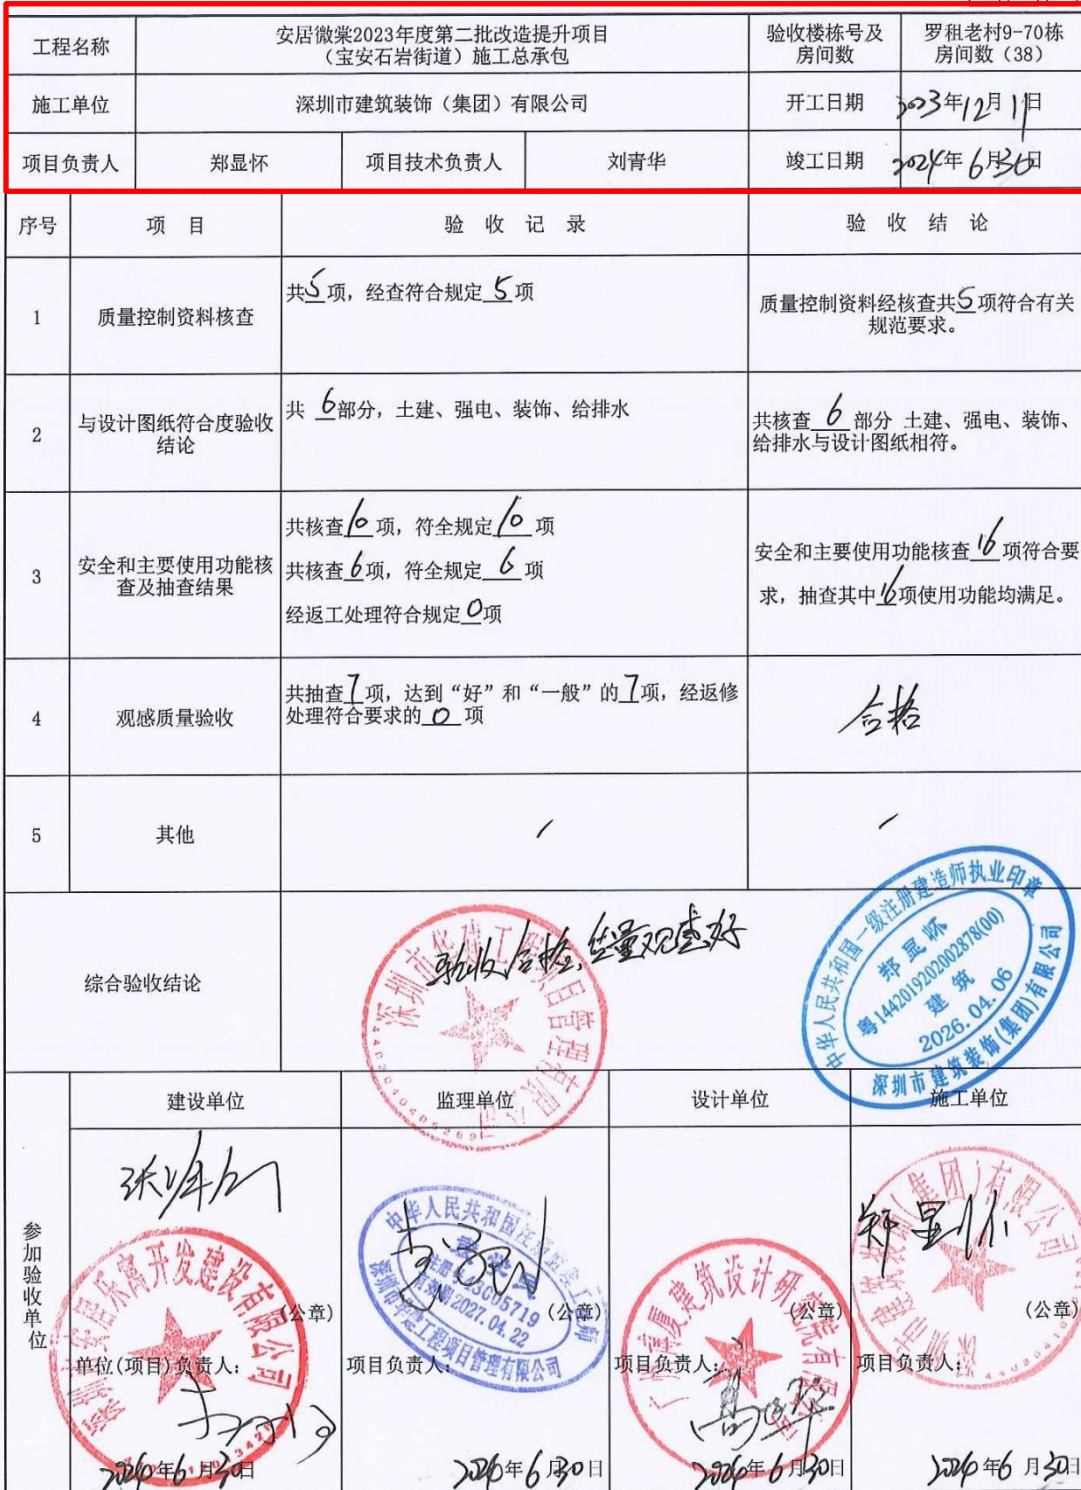 工程名称
安居微棠2023年度第二批改造提升项目
（宝安石岩街道）施工总承包
验收楼栋号及
房间数
罗租老村9-70栋
房间数（38）
施工单位
深圳市建筑装饰（集团）有限公司
开工日期
2023年12月11日
项目负责人
郑显怀
项目技术负责人
刘青华
竣工日期
2024年6月30日
序号
项 目
验 收 记 录
验 收 结 论
1
质量控制资料核查
共5项，经查符合规定5项
质量控制资料经核查共5项符合有关
规范要求。
2
与设计图纸符合度验收
结论
共 6部分，土建、强电、装饰、给排水
共核查 6 部分 土建、强电、装饰、
给排水与设计图纸相符。
3
安全和主要使用功能核
查及抽查结果
共核查10项，符全规定10项
共核查6项，符全规定 6 项
经返工处理符合规定0项
安全和主要使用功能核查16项符合要
求，抽查其中16项使用功能均满足。
4
观感质量验收
共抽查7项，达到“好”和“一般”的7项，经返修
处理符合要求的 0 项
合格
5
其他
综合验收结论
验收合格,质量观感好
深圳市华建工程项目管理有限公司
中华人民共和国一级注册建造师执业印章
郑显怀
粤1442019202002878(00)
建筑
2026.04.06
深圳市建筑装饰(集团)有限公司
参加验收单位
建设单位
监理单位
设计单位
施工单位
郑显怀
(公章)
(公章)
(公章)
(公章)
单位(项目)负责人:
项目负责人:
项目负责人:
项目负责人:
有效期2027.04.22
深圳市华建工程项目管理有限公司
2024年6月30日
2024年6月30日
2024年6月30日
2024年6月30日